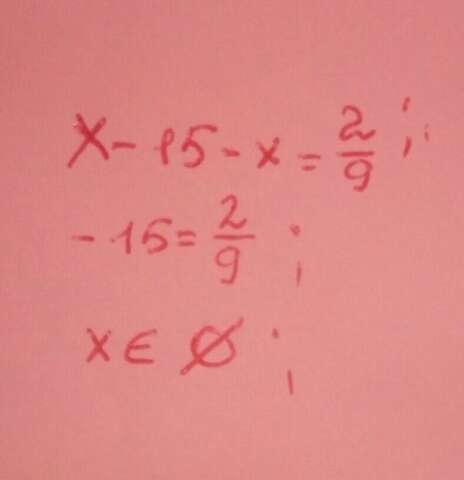 x - 15 - x = 2/9 ;
- 15 = 2/9 ;
x ∈ ∅ ;